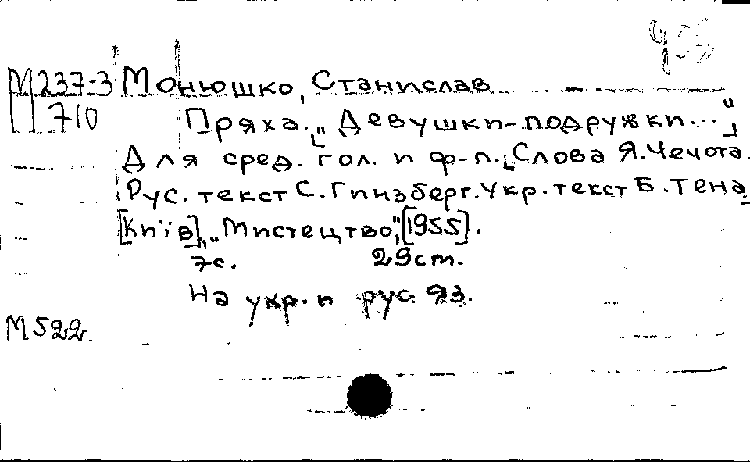 М237-3 Монюшко, Станислав
710 Пряха. „Девушки-подружки..."
Для сред. гол. и ф-п. Слова Я. Чечота.
Рус. текст С. Гинзберг. Укр. текст Б. Тена
[Київ], „Мистецтво", [1955].
7с. 29cm.
На укр. и рус. яз.
М522